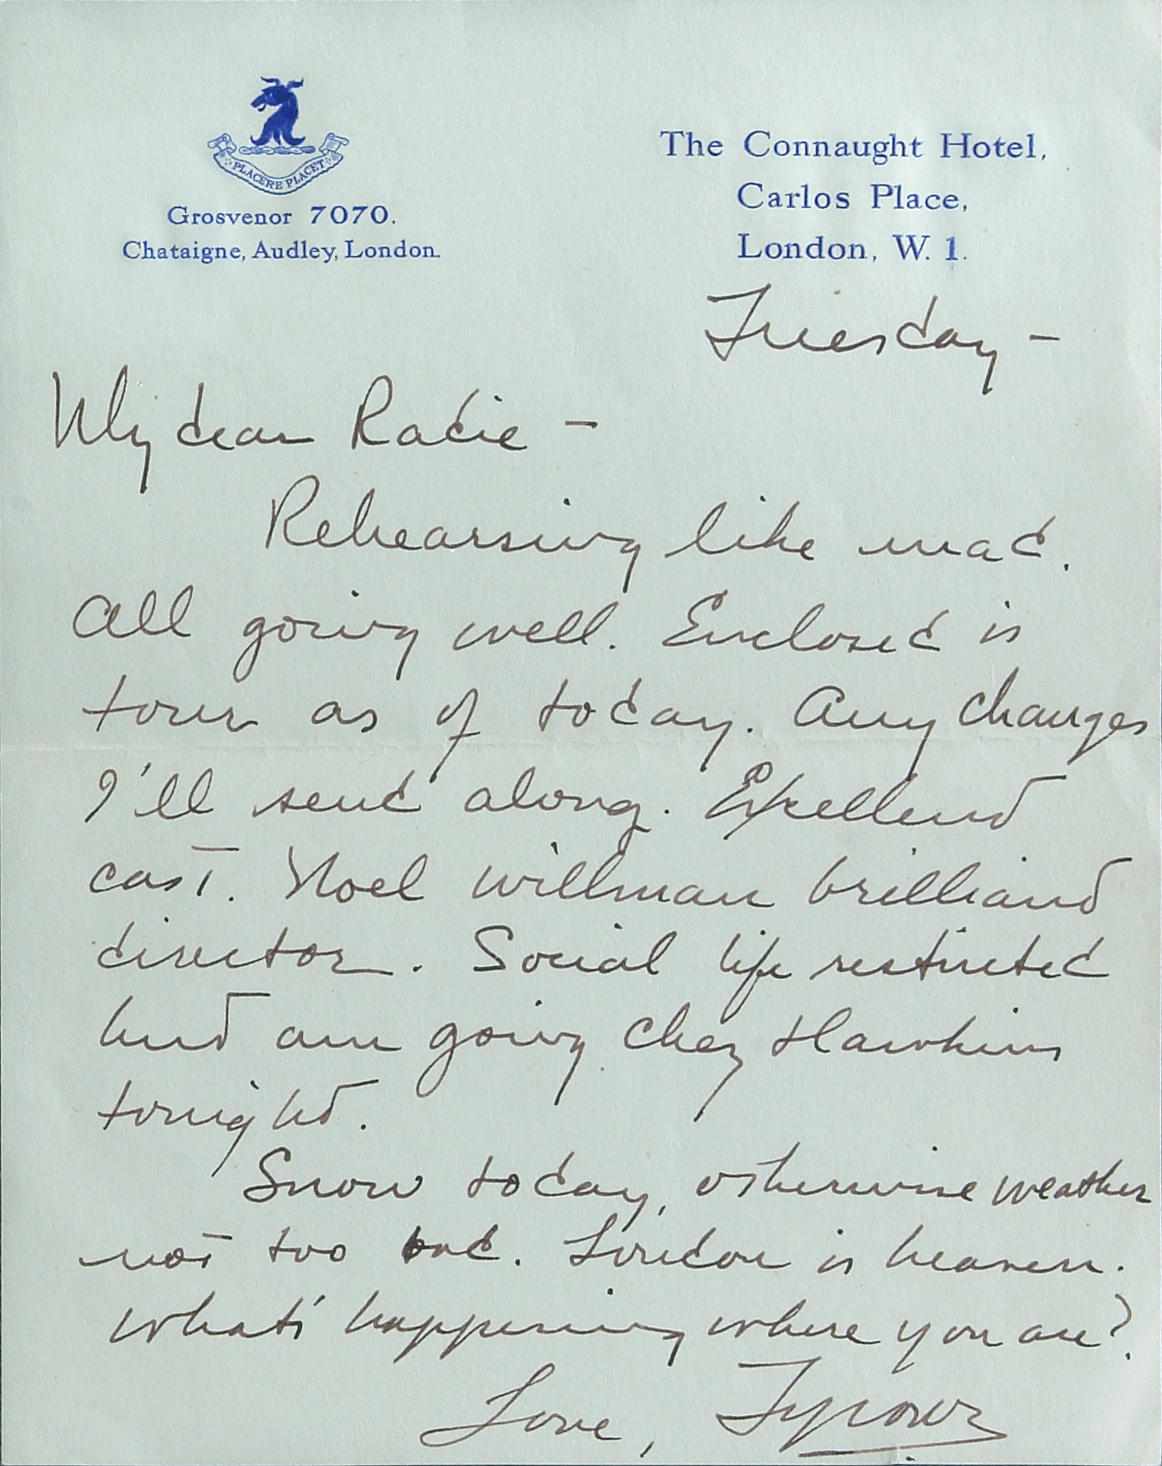 PLACERE PLACET
Grosvenor 7070.
Chataigne, Audley, London.
The Connaught Hotel,
Carlos Place,
London, W. 1.
Tuesday –
My dear Radie –
Rehearsing like mad.
All going well. Enclosed is
tour as of today. Any changes
I'll send along. Excellent
cast. Noel Willman brilliant
director. Social life restricted
but am going chez Hawkins
tonight.
Snow today, otherwise weather
not too bad. London is heaven.
What's happening where you are?
Love, Ty Power